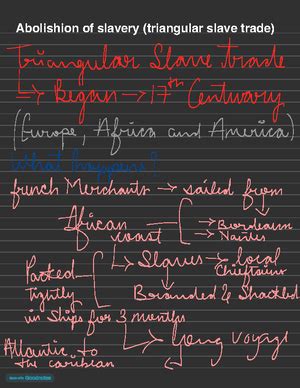 Abolishion of slavery (triangular slave trade)
Triangular Slave trade
↳ Began → 17th Centuary
(Europe, Africa and America)
What happen?
french Merchants → sailed from
African coast
→ Bordeaux
→ Nantes
↳ Slaves → local Chieftains
Packed Tightly in Ships for 3 months
Branded & Shackled
↳ long voyage
Atlantic to the caribbean